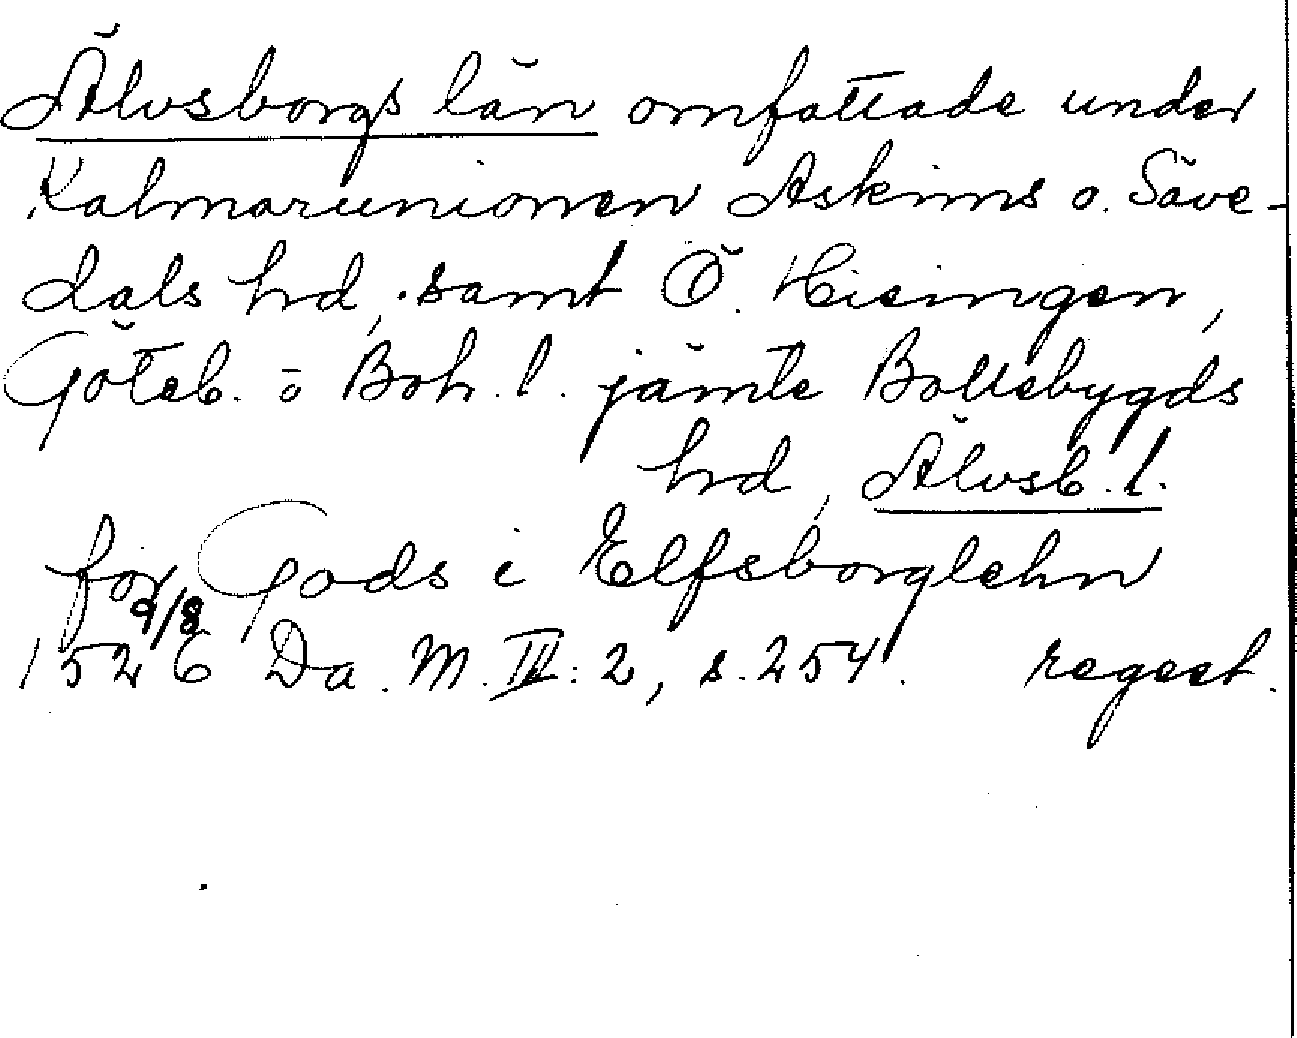 Älvsborgs län omfattade under
Kalmarunionen Askims o. Säve-
dals hrd, samt Ö. Hisingen,
Göteb. o Boh. l. jämte Bollebygds
hrd, Älvsb. l.
for Gods i Elfsborglehn
9/8
1526 Da. M. III: 2, s. 254. regest.